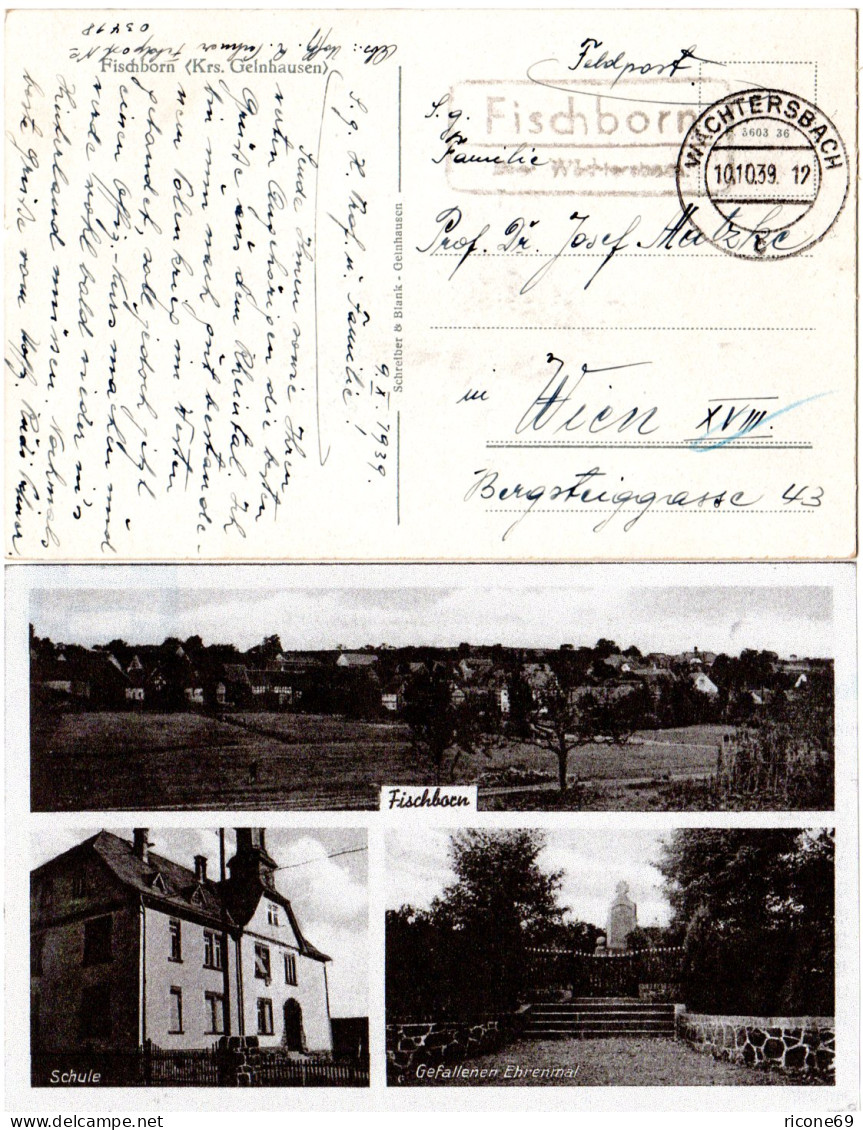 Abs.: Uoffz. R. Feldpost Nr.
03418
Fischborn (Krs. Gelnhausen)
9.X.1939.
S. g. H. Prof. u. Familie!
Sende Ihnen sowie Ihren
werten Angehörigen die besten
Grüße aus dem Rheintal. Ich
bin nun nach gut bestande-
nen Polenkrieg im Westen
gelandet, soll jedoch jetzt
einen Offz.-Kurs machen und
werde wohl bald wieder in's
Hinterland müssen. Nochmals
beste Grüße vom Uoffz. Rudi
Schreiber & Blank - Gelnhausen
Feldpost.
Fischborn
über Wächtersbach
WÄCHTERSBACH
3603 36
10.10.39. 12
S. g.
Familie
Prof. Dr. Josef Matzke
in Wien XVIII.
Bergsteiggasse 43
Fischborn
Schule
Gefallenen Ehrenmal
ricone69